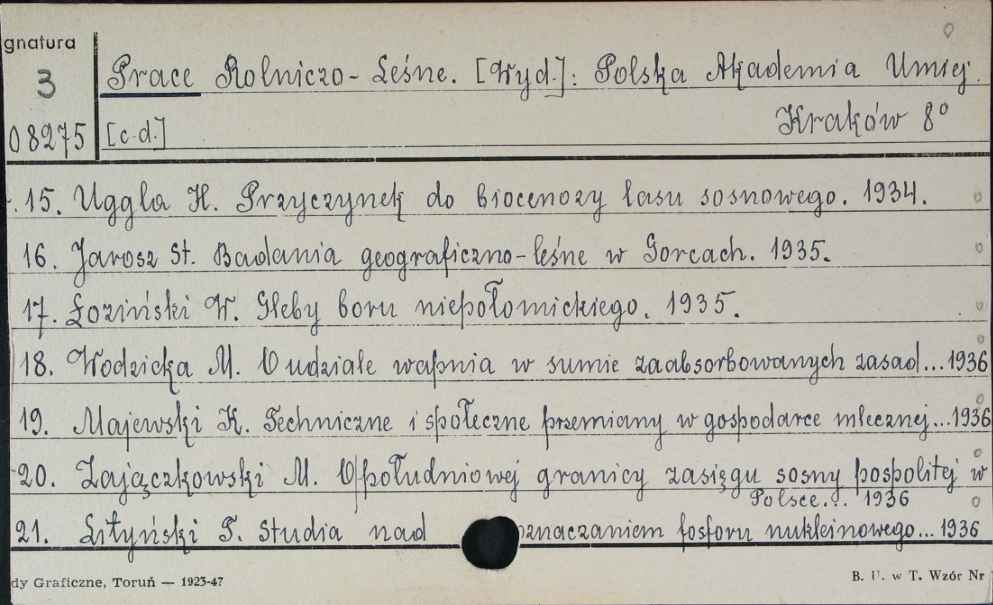 gnatura
3 Prace Rolniczo-Leśne. [Wyd.]: Polska Akademia Umiej.
Kraków 8°
08275 [c.d.]
15. Uggla H. Przyczynek do biocenozy lasu sosnowego. 1934.
16. Jarosz St. Badania geograficzno-leśne w Gorcach. 1935.
17. Łoziński W. Gleby boru niepołomickiego. 1935.
18. Wodzicka M. O udziale wapnia w sumie zaabsorbowanych zasad...1936
19. Majewski K. Techniczne i społeczne przemiany w gospodarce mlecznej...1936
20. Zajączkowski M. O południowej granicy zasięgu sosny pospolitej w
Polsce... 1936
21. Lityński T. Studia nad oznaczaniem fosforu nukleinowego... 1936
dy Graficzne, Toruń — 1923-47
B. U. w T. Wzór Nr